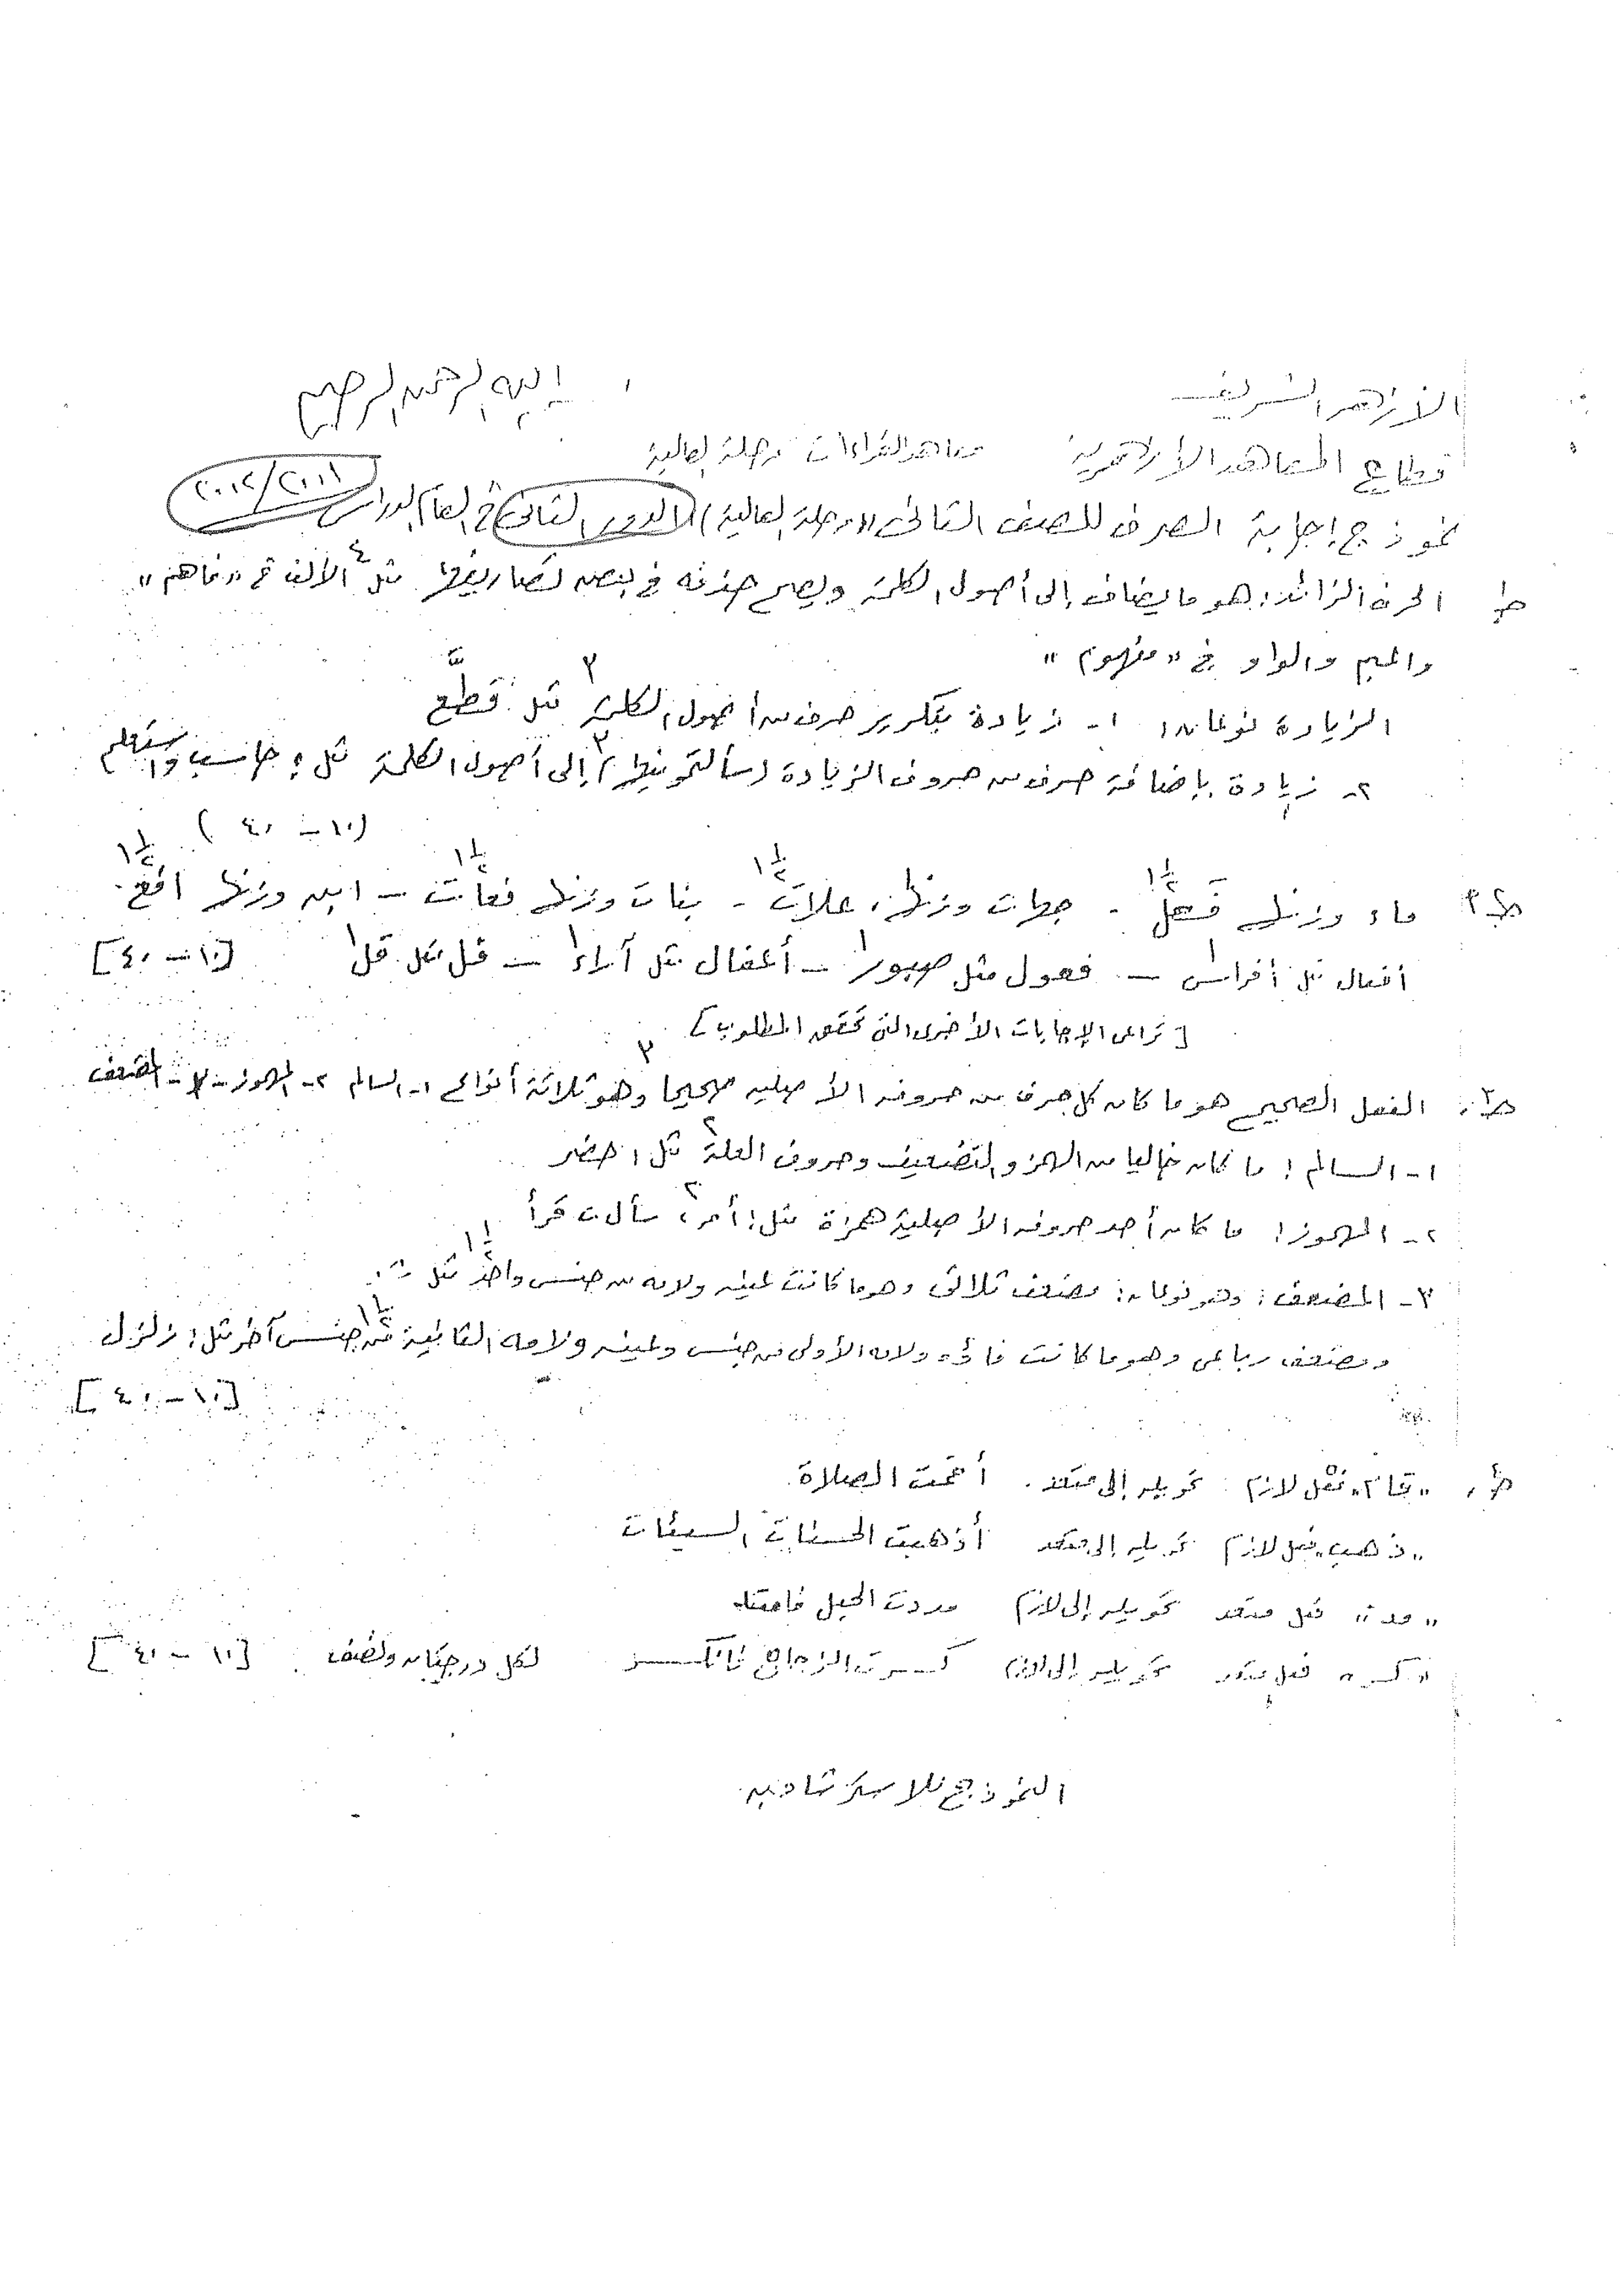 الله الرحمن الرحيم
الأزهر الشريف
قطاع المعاهد الأزهرية معاهد القراءات مرحلة العالية
نموذج إجابة الصرف للصف الثانى «مرحلة العالية» الدور الثانى فى العام الدراسى ٢٠١١/٢٠١٢
ج١ الحرف الزائد: هو ما يضاف إلى أصول الكلمة ويصح حذفه فى بعض تصاريفها ٤ مثل الألف فى «فاهم»
والميم والواو فى «مفهوم»
الزيادة نوعان: ١- زيادة بتكرير حرف من أصول الكلمة ٣ مثل: قطَّع
٢- زيادة بإضافة حرف من حروف الزيادة (سألتمونيها) ٣ إلى أصول الكلمة مثل: حاسب واستعلم
(١٠ - ٤٠)
ج٢ ماء وزنها فَعَل ١½ - جهات وزنها علات ١½ - بنات وزنها فعات ١½ - ابن وزنها افع ١½
أفعال مثل أفراس ١ - فعول مثل صبور ١ - أعفال مثل آراء ١ - فل مثل قل ١ [١٠ - ٤٠]
[تراعى الإجابات الأخرى التى تحقق المطلوب]
ج٣ الفعل الصحيح هو ما كان كل حرف من حروفه الأصلية صحيحا ٣ وهو ثلاثة أنواع ١- السالم ٢- المهموز ٣- المضعف
١- السالم: ما كان خاليا من الهمز والتضعيف وحروف العلة ٢ مثل: حضر
٢- المهموز: ما كان أحد حروفه الأصلية همزة ٢ مثل: أمر، سأل، قرأ
٣- المضعف: وهو نوعان: مضعف ثلاثى وهو ما كانت عينه ولامه من جنس واحد ١½ مثل
ومضعف رباعى وهو ما كانت فاؤه ولامه الأولى من جنس وعينه ولامه الثانية من جنس آخر ١½ مثل: زلزل
[١٠ - ٤٠]
ج٤ «قام» فعل لازم تحويله إلى متعد. أقمت الصلاة
«ذهب» فعل لازم تحويله إلى متعد أذهبت الحسنات السيئات
«مد» فعل متعد تحويله إلى لازم مددت الحبل فامتد
«كسر» فعل متعد تحويله إلى لازم كسرت الزجاج فانكسر لكل درجتان ونصف [١٠ - ٤٠]
النموذج للاسترشاد به